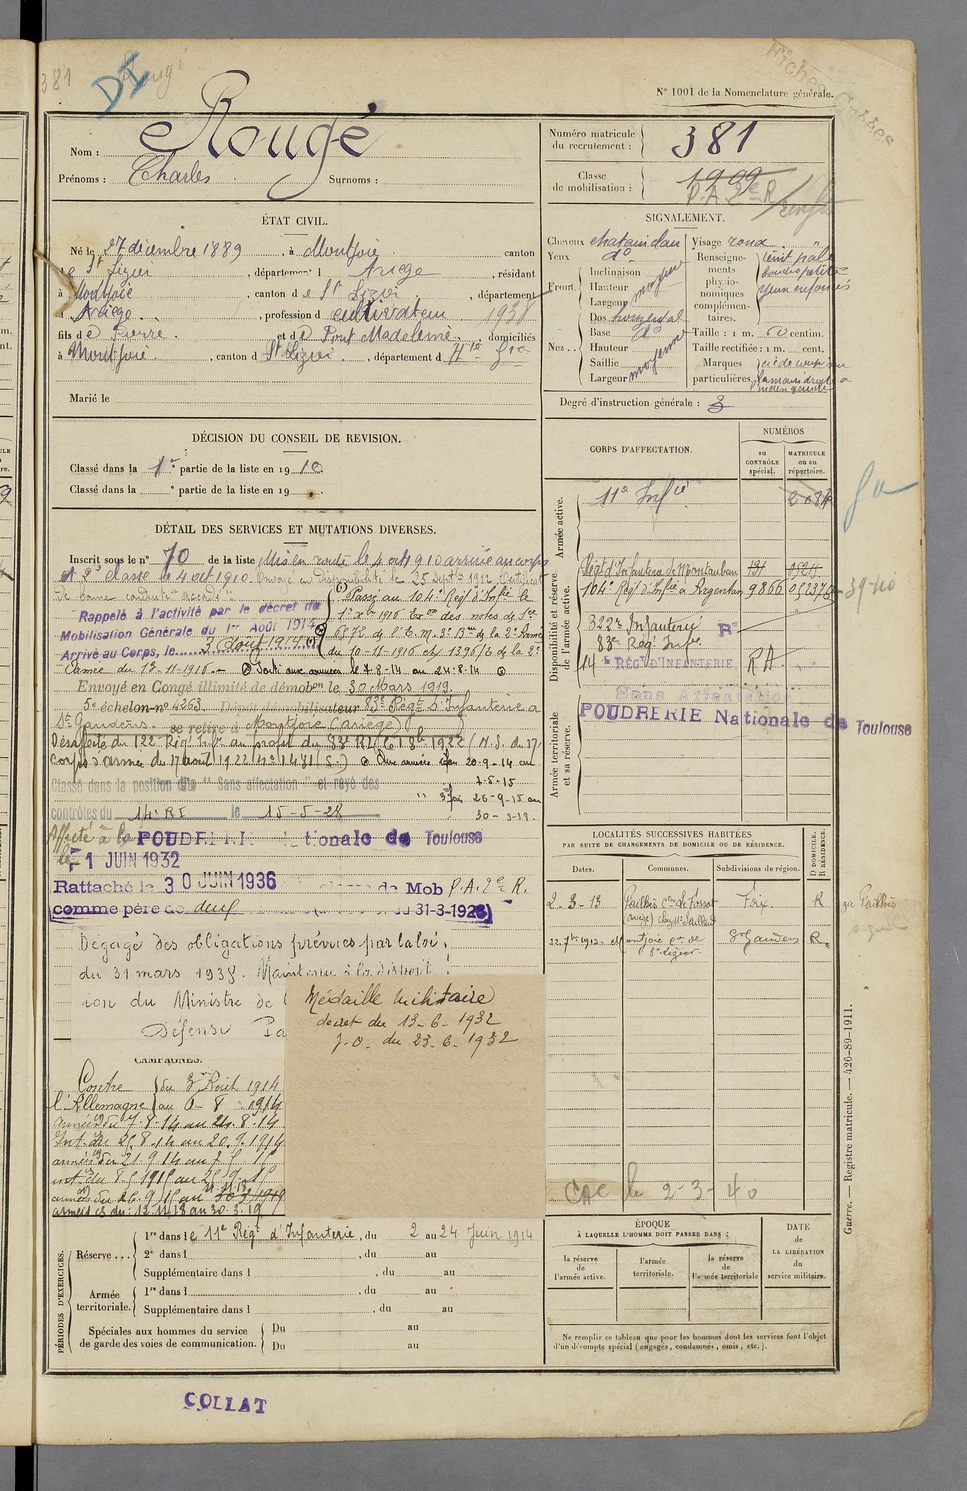 381
N° 1001 de la Nomenclature générale.
Nom : Rougé
Prénoms : Charles Surnoms :
Numéro matricule du recrutement : 381
Classe de mobilisation : 1909
P.A. 2e R
ÉTAT CIVIL.
Né le 27 décembre 1889, à Montjoie canton
de St Lizier, département d Ariège, résidant
à Montjoie, canton de St Lizier, département
d Ariège, profession de cultivateur 1938
fils de Pierre et de Pont Madeleine domiciliés
à Montjoie, canton d St Lizier, département d Hte Gne
Marié le
SIGNALEMENT.
Cheveux chatain clair
Yeux do
Front. Inclinaison
Hauteur moyen
Largeur
Nez. Dos horizontal
Base do
Hauteur
Saillie moyenne
Largeur
Visage rond
Renseignements physionomiques complémentaires.
teint pale
bouche petite
yeux enfoncés
Taille : 1 m. 60 centim.
Taille rectifiée : 1 m. cent.
Marques particulières
Degré d'instruction générale : 3
DÉCISION DU CONSEIL DE REVISION.
Classé dans la 1re partie de la liste en 1910
Classé dans la e partie de la liste en 19
DÉTAIL DES SERVICES ET MUTATIONS DIVERSES.
Inscrit sous le n° 70 de la liste Mis en route le 4 oct 1910 arrivé au corps
et 2e classe le 4 oct 1910. Envoyé en disponibilité le 25 septbre 1912. Certificat
de bonne conduite accordé.
Rappelé à l'activité par le décret de
Mobilisation Générale du 1er Août 1914
Arrivé au Corps, le 3 août 1914
Passé au 104e Rég d'Infie le
1er xbre 1916 Exon des notes de Sce
6572 de l'E.M. 3e Bau de la 2e Armée
du 10-11-1916 et 1396/E de la 2e
Armée du 12-11-1916. Parti aux armées le 7-8-14 au 24-8-14
Envoyé en Congé illimité de démobon le 30 Mars 1919.
5e échelon n° 4263. Dépôt démobilisateur 83e Régt d'Infanterie à
St Gaudens. se retire à Montjoie (Ariège)
Désaffecté du 122e Rég. Infie au profit du 83e RI
corps d'armée du 17 août 1922 Aux armées 20-9-14 au
7-5-15
26-9-15 au
30-3-19.
Classé dans la position dite "Sans affectation" et rayé des
contrôles du 14e RI le 15-5-28
Affecté à la POUDRERIE Nationale de Toulouse
le 1 JUIN 1932
Rattaché le 30 JUIN 1936 de Mob P.A. 2e R.
comme père de deux 31-3-1928)
Dégagé des obligations prévues par la loi
du 31 mars 1938. Maintenu à la disposit
ion du Ministre de l
Défense
Médaille militaire
décret du 13-6-1932
J.O. du 23-6-1932
CAMPAGNES.
Contre du 3 Août 1914
l'Allemagne au 6-8-1914
armées du 7-8-14 au 24-8-14
Int. de 25.8.14 au 20.9.1914
armées du 21.9.14 au 7.5.15
int. du 8.5.1915 au 25.9.15
armées du 26.9.15 au 30.3.1919
armées du : 12.11.18 au 30.3.19
PÉRIODES D'EXERCICES.
Réserve...
1re dans le 11e Régt d'Infanterie, du 2 au 24 Juin 1914
2e dans l , du au
Supplémentaire dans l , du au
Armée territoriale.
1re dans l , du au
Supplémentaire dans l , du au
Spéciales aux hommes du service de garde des voies de communication.
Du au
Du au
CORPS D'AFFECTATION.
NUMÉROS
au CONTRÔLE spécial.
MATRICULE ou au répertoire.
Armée active.
11e Infie
Disponibilité et réserve de l'armée active.
Régt d'Infanterie de Montauban
104e Rég d'Infie à Argentan 9866
39-40
322e Infanterie
83e Rég. Infie
14e RÉGT D'INFANTERIE RA
Sans Affectation
POUDRERIE Nationale de Toulouse
Armée territoriale et sa réserve.
LOCALITÉS SUCCESSIVES HABITÉES
PAR SUITE DE CHANGEMENTS DE DOMICILE OU DE RÉSIDENCE.
Dates. Communes. Subdivisions de région. D DOMICILE. R RÉSIDENCE.
2-3-13 Foix R
Montjoie con de St Lizier St Gaudens R.
CAC le 2-3-40
ÉPOQUE
À LAQUELLE L'HOMME DOIT PASSER DANS :
la réserve de l'armée active.
l'armée territoriale.
la réserve de l'armée territoriale
DATE de LA LIBÉRATION du service militaire.
Ne remplir ce tableau que pour les hommes dont les services font l'objet
d'un décompte spécial (engagés, condamnés, omis, etc.).
Guerre. — Registre matricule. — 426-89-1911.
COLLAT